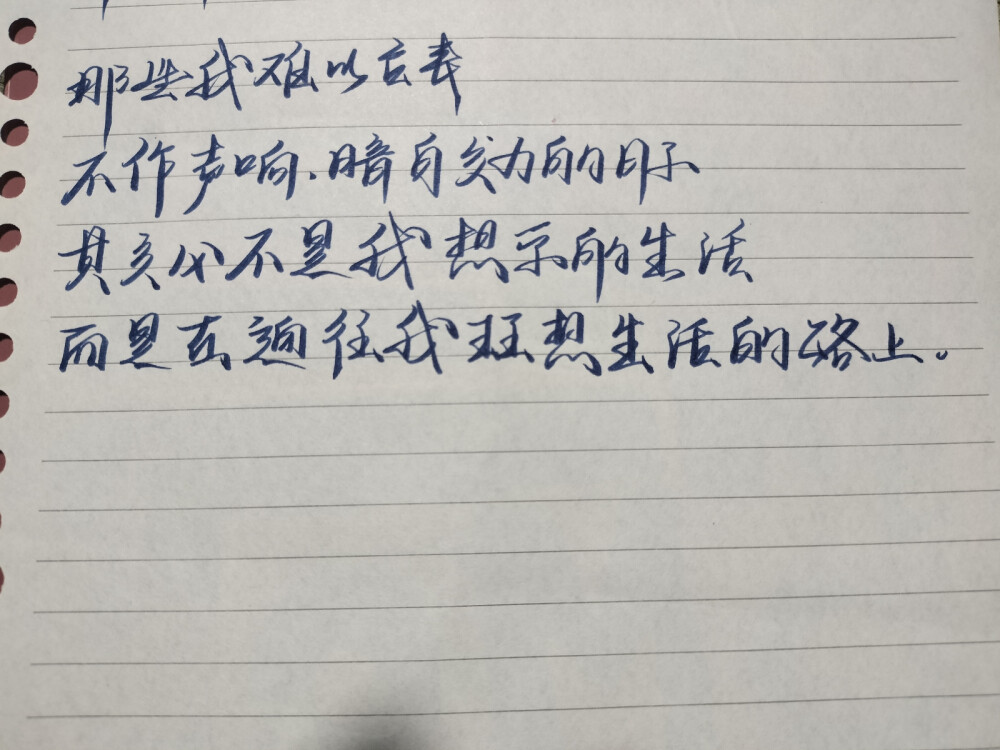 那些我难以言表
不作声响.暗自努力的日子
其实必不是我想示的生活
而是在通往我理想生活的路上。